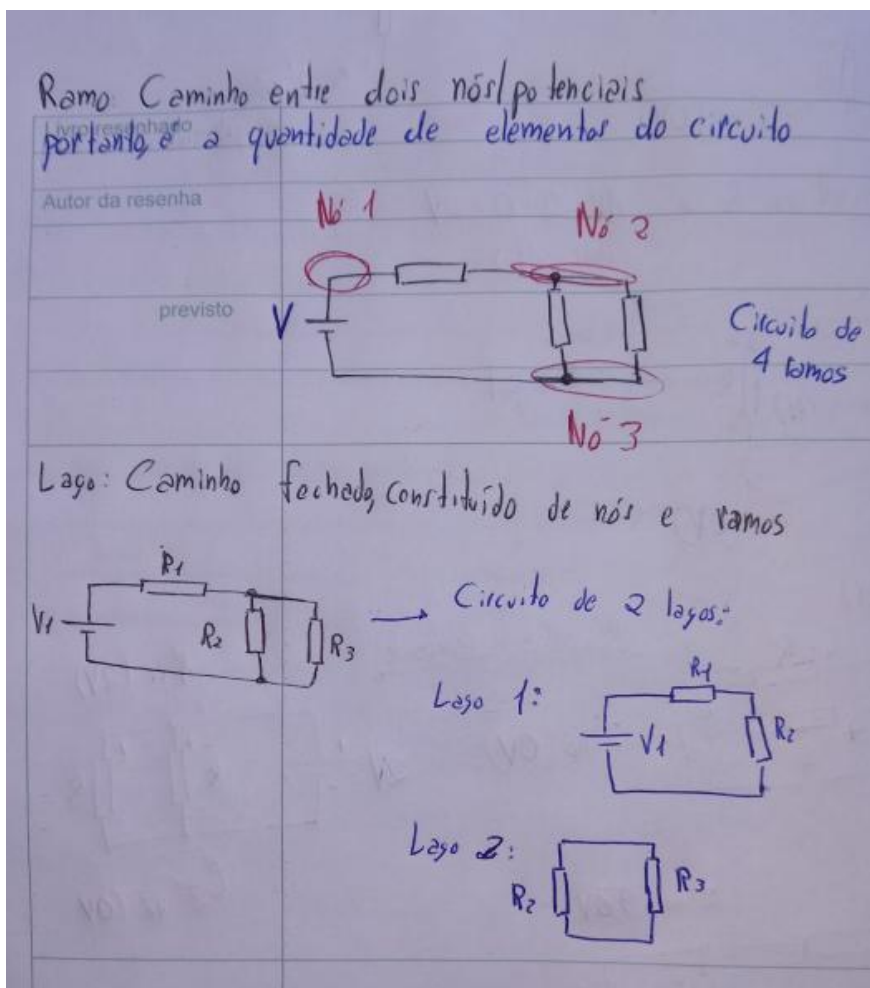 Ramo: Caminho entre dois nós/potenciais
Livro resenhado
portanto, é a quantidade de elementos do circuito
Autor da resenha
Nó 1
Nó 2
previsto
V
Circuito de
4 ramos
Nó 3
Laço: Caminho fechado, constituído de nós e ramos
R1
V1
R2
R3
Circuito de 2 laços:
Laço 1:
R1
V1
R2
Laço 2:
R2
R3